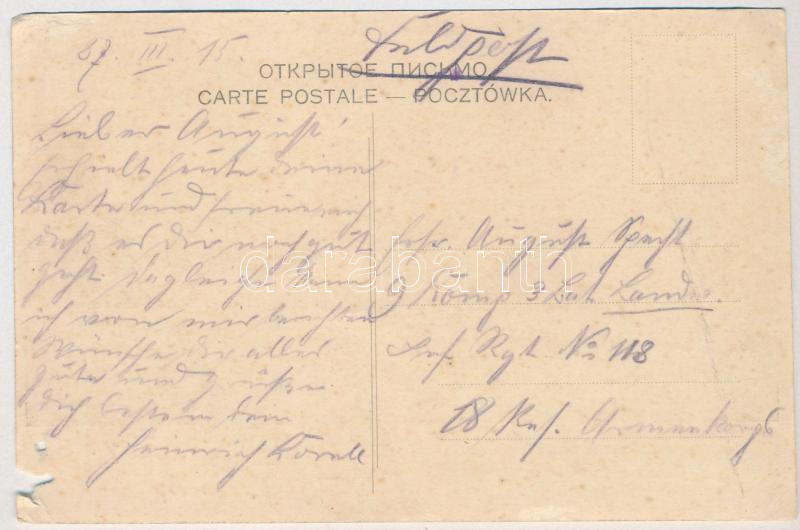 27. III. 15.
Feldpost
ОТКРЫТОЕ ПИСЬМО
CARTE POSTALE — POCZTÓWKA.
Lieber August!
Erhielt heute deine
Karte und freue mich
daß es dir noch gut
geht. Dasgleiche kann
ich von mir berichten
Wünsche dir alles
gute und grüße
dich bestens dein
Heinrich
August Specht
9 Komp 3 Bat. Landw.
Inf Rgt No 118
18 Res. Armeekorps
darabanth